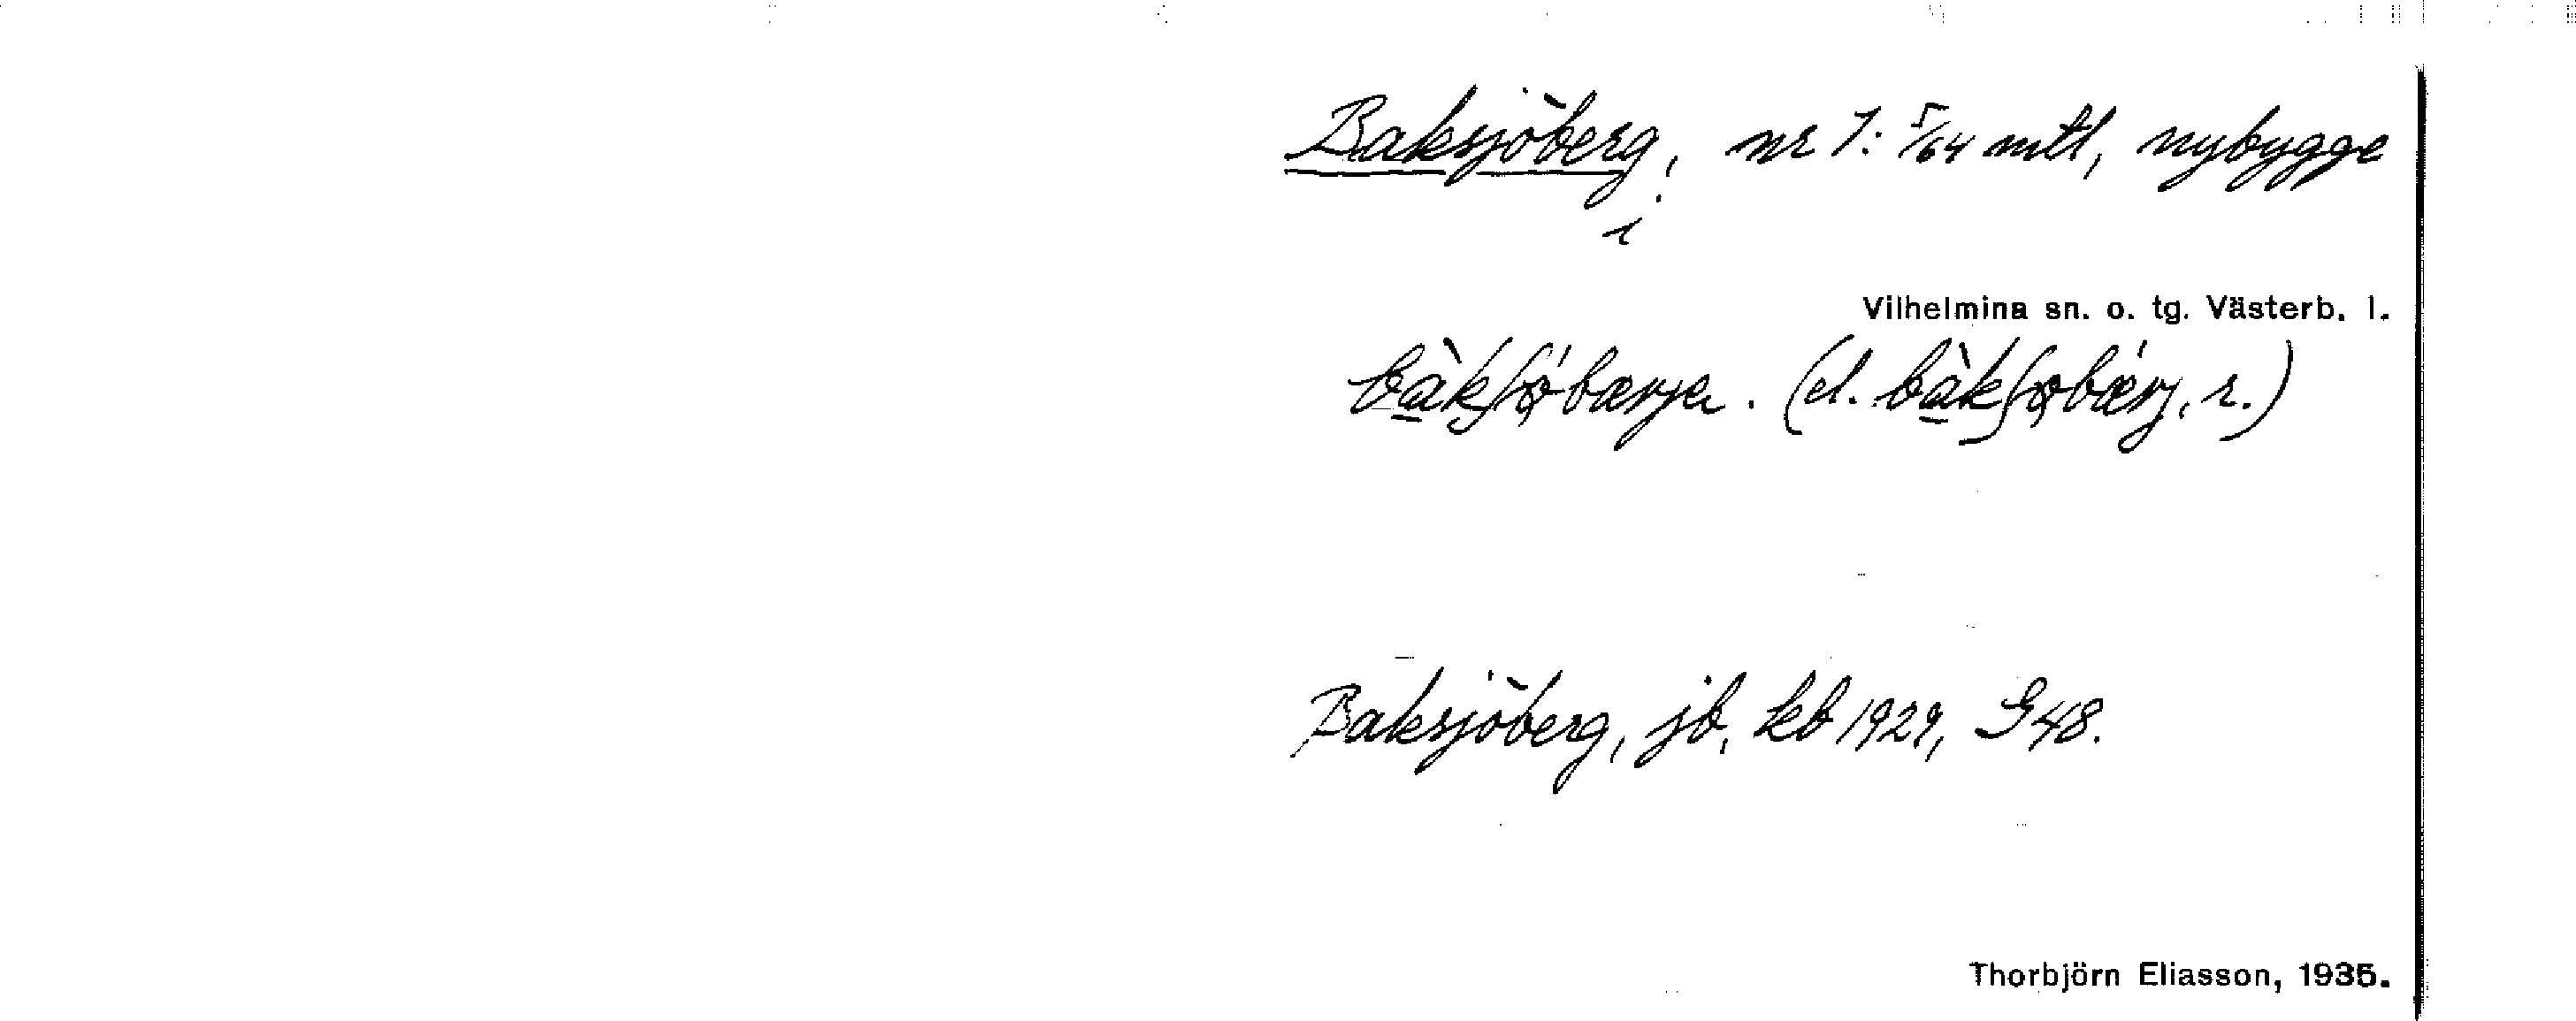 Baksjöberg, nr 1: 5/64 mtl, nybygge
i
Vilhelmina sn. o. tg. Västerb. l.
bàkʃǿbærjа. (el. bàkʃøbǽrj, r.)
Baksjöberg, jb, kb 1929, G48.
Thorbjörn Eliasson, 1935.